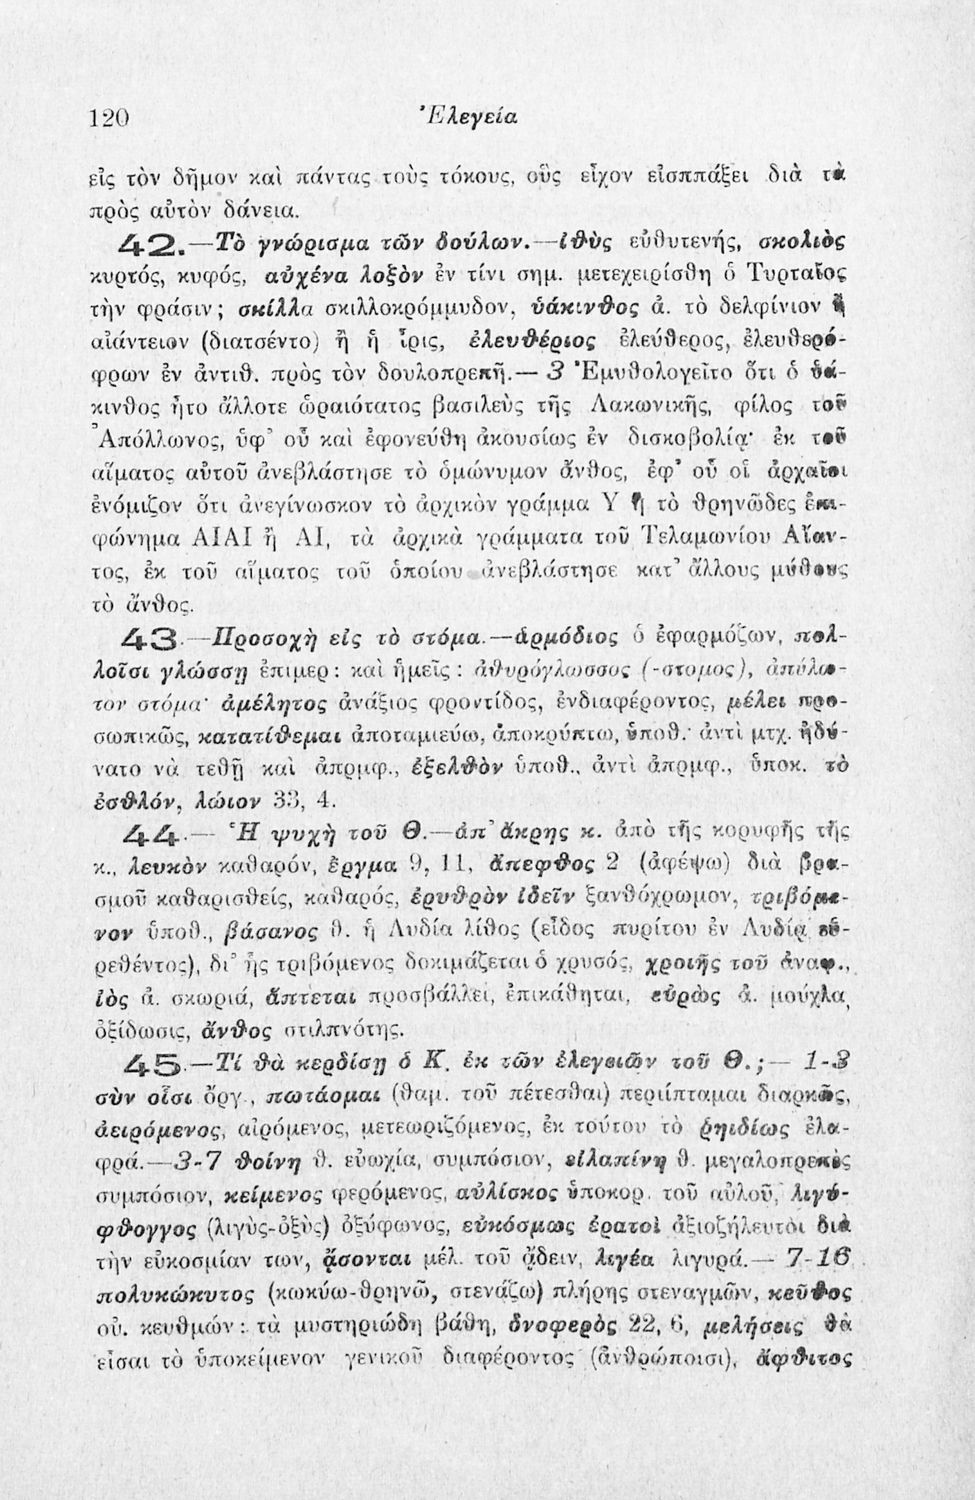 120 Ἐλεγεία
εἰς τὸν δῆμον καὶ πάντας τοὺς τόκους, οὓς εἶχον εἰσππάξει διὰ τὰ
πρὸς αὐτὸν δάνεια.
42.—Τὸ γνώρισμα τῶν δούλων.—ἰθὺς εὐθυτενής, σκολιὸς
κυρτός, κυφός, αὐχένα λοξὸν ἐν τίνι σημ. μετεχειρίσθη ὁ Τυρταῖος
τὴν φράσιν; σκίλλα σκιλλοκρόμμυδον, ὑάκινθος ἀ. τὸ δελφίνιον ἢ
αἰάντειον (διατσέντο) ἢ ἡ ἶρις, ἐλευθέριος ἐλεύθερος, ἐλευθερό-
φρων ἐν ἀντιθ. πρὸς τὸν δουλοπρεπῆ.— 3 Ἐμυθολογεῖτο ὅτι ὁ ὑά-
κινθος ἦτο ἄλλοτε ὡραιότατος βασιλεὺς τῆς Λακωνικῆς, φίλος τοῦ
Ἀπόλλωνος, ὑφ' οὗ καὶ ἐφονεύθη ἀκουσίως ἐν δισκοβολίᾳ· ἐκ τοῦ
αἵματος αὐτοῦ ἀνεβλάστησε τὸ ὁμώνυμον ἄνθος, ἐφ' οὗ οἱ ἀρχαῖοι
ἐνόμιζον ὅτι ἀνεγίνωσκον τὸ ἀρχικὸν γράμμα Υ ἢ τὸ θρηνῶδες ἐπι-
φώνημα ΑΙΑΙ ἢ ΑΙ, τὰ ἀρχικὰ γράμματα τοῦ Τελαμωνίου Αἴαν-
τος, ἐκ τοῦ αἵματος τοῦ ὁποίου ἀνεβλάστησε κατ' ἄλλους μύθους
τὸ ἄνθος.
43.—Προσοχὴ εἰς τὸ στόμα.—ἁρμόδιος ὁ ἐφαρμόζων, πολ-
λοῖσι γλώσσῃ ἐπιμερ: καὶ ἡμεῖς: ἀθυρόγλωσσος (-στομος), ἀπύλω-
τον στόμα· ἀμέλητος ἀνάξιος φροντίδος, ἐνδιαφέροντος, μέλει προ-
σωπικῶς, κατατίθεμαι ἀποταμιεύω, ἀποκρύπτω, ὑποθ.· ἀντὶ μτχ. ἠδύ-
νατο νὰ τεθῇ καὶ ἀπρμφ., ἐξελθὸν ὑποθ., ἀντὶ ἀπρμφ., ὑποκ. τὸ
ἐσθλόν, λώιον 33, 4.
44.— Ἡ ψυχὴ τοῦ Θ.—ἀπ' ἄκρης κ. ἀπὸ τῆς κορυφῆς τῆς
κ., λευκὸν καθαρόν, ἔργμα 9, 11, ἄπεφθος 2 (ἀφέψω) διὰ βρα-
σμοῦ καθαρισθείς, καθαρός, ἐρυθρὸν ἰδεῖν ξανθόχρωμον, τριβόμε-
νον ὑποθ., βάσανος θ. ἡ Λυδία λίθος (εἶδος πυρίτου ἐν Λυδίᾳ εὑ-
ρεθέντος), δι' ἧς τριβόμενος δοκιμάζεται ὁ χρυσός, χροιῆς τοῦ ἀναφ.,
ἰὸς ἀ. σκωριά, ἅπτεται προσβάλλει, ἐπικάθηται, εὐρὼς ἀ. μούχλα,
ὀξίδωσις, ἄνθος στιλπνότης.
45.—Τί θὰ κερδίσῃ ὁ Κ. ἐκ τῶν ἐλεγειῶν τοῦ Θ.;— 1-3
σὺν οἷσι ὄργ., πωτάομαι (θαμ. τοῦ πέτεσθαι) περιίπταμαι διαρκῶς,
ἀειρόμενος, αἰρόμενος, μετεωριζόμενος, ἐκ τούτου τὸ ῥηιδίως ἐλα-
φρά.—3-7 θοίνη θ. εὐωχία, συμπόσιον, εἰλαπίνη θ. μεγαλοπρεπὲς
συμπόσιον, κείμενος φερόμενος, αὐλίσκος ὑποκορ. τοῦ αὐλοῦ, λιγύ-
φθογγος (λιγὺς-ὀξὺς) ὀξύφωνος, εὐκόσμως ἐρατοὶ ἀξιοζήλευτοι διὰ
τὴν εὐκοσμίαν των, ᾄσονται μέλ. τοῦ ᾄδειν, λιγέα λιγυρά.— 7-16
πολυκώκυτος (κωκύω-θρηνῶ, στενάζω) πλήρης στεναγμῶν, κεῦθος
οὐ. κευθμών: τὰ μυστηριώδη βάθη, δνοφερὸς 22, 6, μελήσεις θὰ
εἶσαι τὸ ὑποκείμενον γενικοῦ διαφέροντος (ἀνθρώποισι), ἄφθιτος